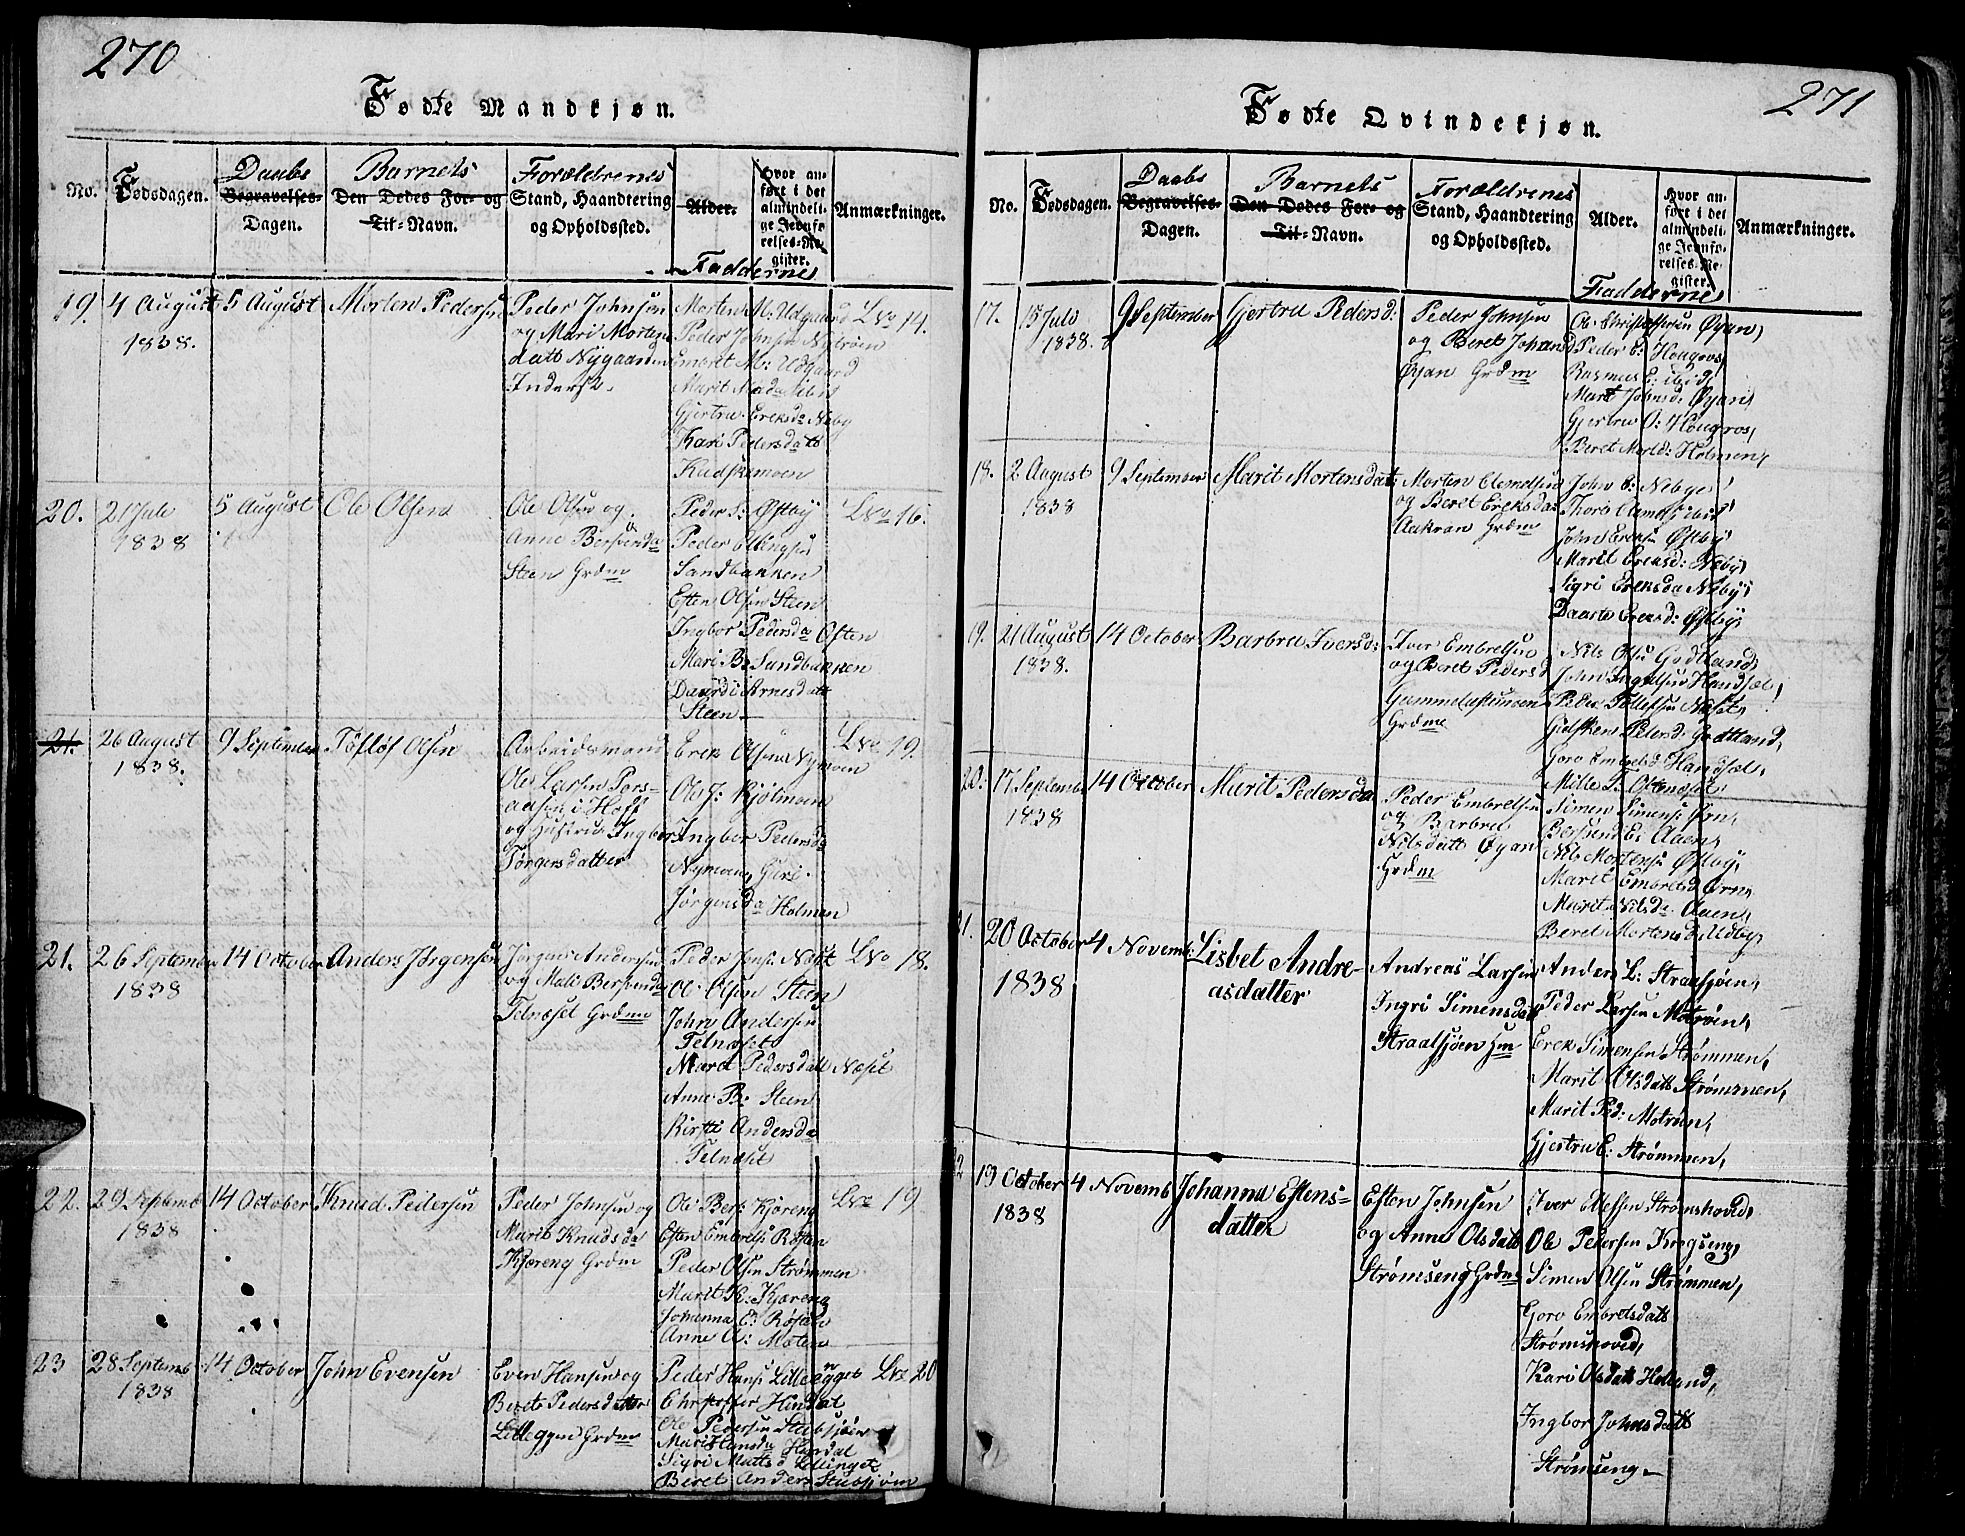 270
Fødte Mandkjøn.
No.
Fødsdagen.
Daabs
Begravelses-
Dagen.
Barnets
Den Dødes For- og
Til-Navn.
Forældrenes
Stand, Haandtering
og Opholdssted.
Alder.
Hvor an-
ført i det
almindeli-
ge Jevnfø-
relses-Re-
gister.
Fadderne
Anmærkninger.
19.
4 August
1838.
5 August
Morten Pedersen
Peder Johnsen
og Mari Mortens
datt Nygaarden
Morten M. Udgaard
Peder Johnsen Nystrøen
Embret M: Udgaard
Gjertru Ereksda Neby
Kari Pedersdatt
No 14.
20.
21 Juli
1838
5 August
Ole Olsen
Ole Olsen og
Anne Bersvenda
Steen Grdm
Peder S: Østby
Peder Ellingsen
Sandbakken
Esten Olsen Steen
Ingbor Pedersda Østen
Mari B: Sandbakken
Daardi Arnesdatt
Steen
No 16.
21.
26 August
1838.
9 September
Tøfløf Olsen
Arbeidsmand
Ole Larsen Tors-
aasen i Hoff
og Hustrue Ingbor
Tørgersdatter
Erek Olsen Nymoen
Ole J: Kjølmoen
Ingbor Pedersda
Nymoen, Guri
Jørgensda Holmen
No 19.
21.
26 September
1838
14 October
Anders Jørgensen
Jørgen Andersen
og Mali Bersvenda
Telneset Grdm
Peder Jens: Næset
Ole Olsen Steen
John Andersen
Telnæset
Maret Pedersdatt Næset
Anne B: Steen
Kirsti Andersda
Telnæset
No 18.
22.
29 Septemb
1838
14 October
Knud Pedersen
Peder Johnsen og
Marit Knudsda
Kjøreng Grdm
Ole Bers: Kjøreng
Esten Embrets: Røsten
Peder Olsen Strømmen
Marit K: Kjøreng
Johanna E: Røsten
Anne O: Moten
No 19
23
28 Septemb
1838
14 October
John Evensen
Even Hansen og
Beret Pedersdatter
Lilleggen Grdm
Peder Hans: Lilleegget
Christoffer Hindal
Ole Pedersen Stubsjøen
Mari Hansda Hindal
Sigri Mattsd Lillinget
Beret Anders Stubsjøen
No 20
271
Fødte Qvindekjøn.
No.
Fødsdagen.
Daabs
Begravelses-
Dagen.
Barnets
Den Dødes For- og
Til-Navn.
Forældrenes
Stand, Haandtering
og Opholdssted.
Alder.
Hvor an-
ført i det
almindeli-
ge Jevnfø-
relses-Re-
gister.
Fadderne
Anmærkninger.
17.
15 Juli
1838.
9 September
Gjertru Pedersd:
Peder Johnsen
og Beret Johansd
Øyan Grdm
Ole Christophersen Øyan,
Peder E: Hougros,
Rasmus E: ibid,
Marit Johnsd: Øyan,
Gjertru O: Hougros,
Beret Mortd: Holmen,
18.
2 August
1838
9 September
Marit Mortensdatt:
Morten Clemetsen
og Beret Ereksdatt
Aakran Grdm
John E: Nebye,
Thore Clemets: ibid,
John Ereksen Østby,
Marit Ereksd: Neby,
Sigri Ereksda Neby,
Daarte Ereksd: Østby,
19.
21 August
1838.
14 October
Barbru Iversd:
Iver Embretsen
og Beret Pedersd
Gammelsstuemoen
Grdm
Nils Olsen Godtland,
John Ingelsen Handsæl,
Peder Tollefsen Næset,
Gidsken Pedersd: Godtland,
Goro Embretsd Handsæl,
Mille T: Østenæset,
20.
17 Septemb
1838
14 October
Marit Pedersda
Peder Embretsen
og Barbru
Nilsdatt Øyan
Grdm
Simen Simens: Ørn,
Bersvend E: Aaen,
Nils Mortens: Østby,
Marit Embretsd Ørn,
Marit Nilsda Aaen,
Beret Mortensd Udby,
21.
20 October
1838
4 Novemb:
Lisbet Andre-
asdatter
Andreas Larsen
Ingri Simensdatt
Straalsjøen Hm
Anders L: Straasjøen,
Peder Larsen Motrøen,
Erek Simensen Strømmen,
Marit Olsdatt Strømmen,
Marit Ped: Motrøen,
Gjertru E: Strømmen,
22
19 October
1838
4 Novemb
Johanna Estens-
datter
Esten Johnsen
og Anne Olsdatt
Strømseng Grdm
Iver Ellefsen Strømshoved,
Ole Pedersen Krogseng,
Simen Olsen Strømmen,
Goro Embretsdatt
Strømshoved,
Kari Olsdatt Hesland,
Ingbor Johnsdatt
Strømseng